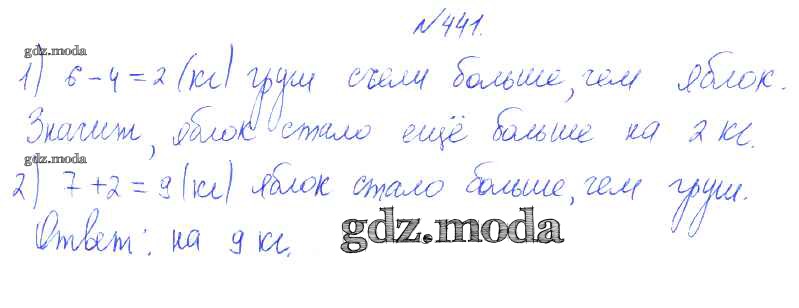 №441.
gdz.moda
1) 6-4=2 (кг) груш съели больше, чем яблок.
Значит, яблок стало ещё больше на 2 кг.
gdz.moda
2) 7+2=9 (кг) яблок стало больше, чем груш.
Ответ: на 9 кг.
gdz.moda